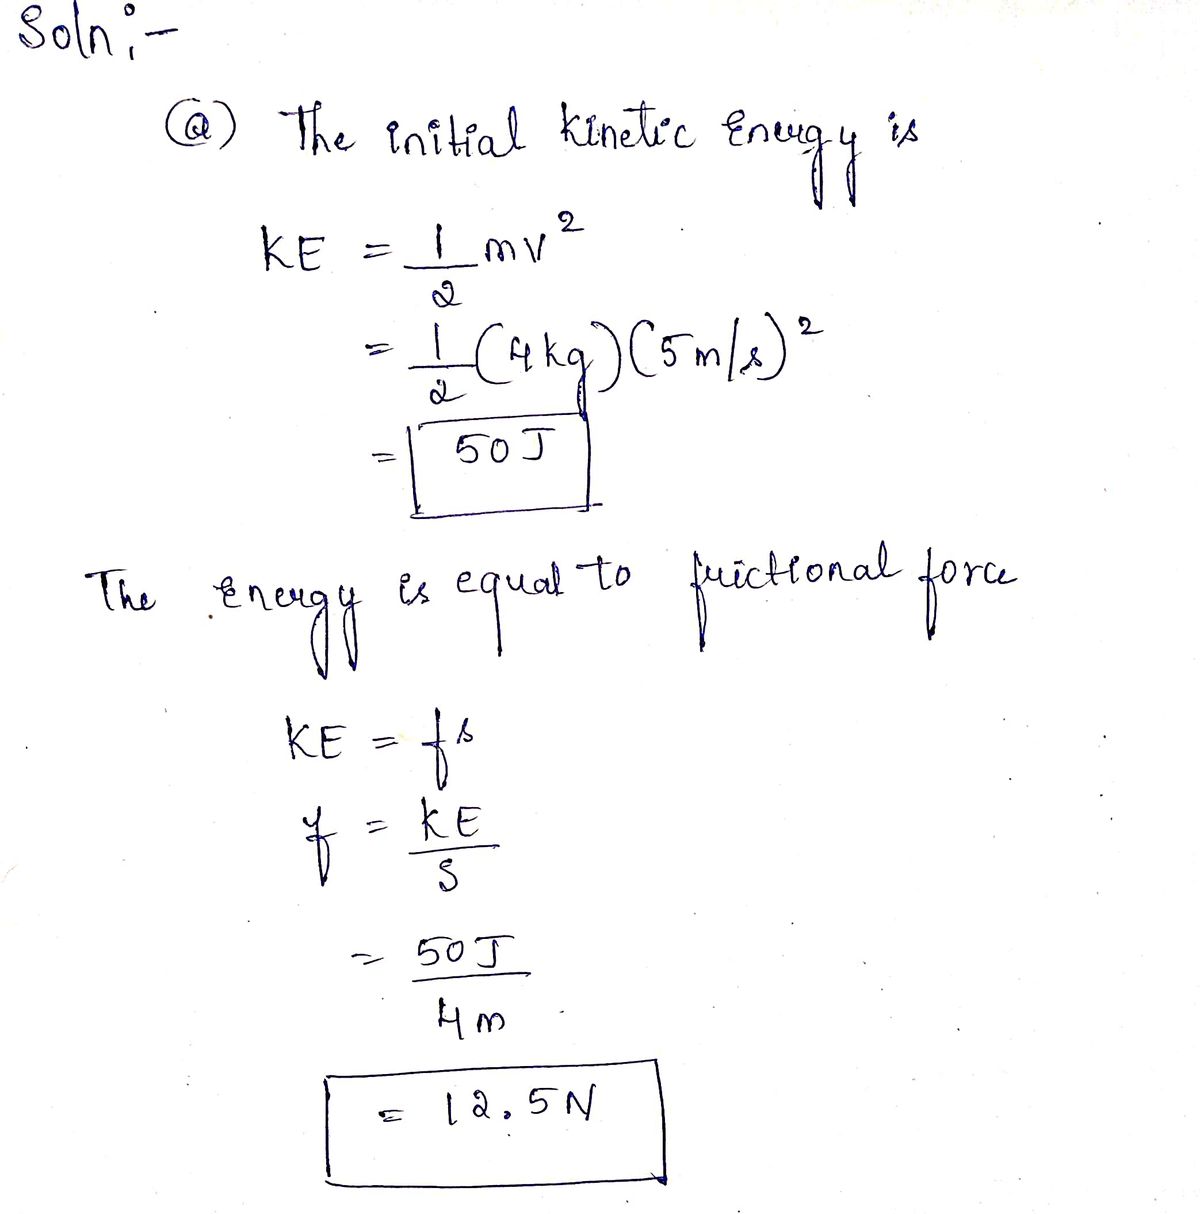 Soln:-
(a) The initial kinetic Energy is
KE = 1/2 mv²
= 1/2 (4kg)(5m/s)²
= 50J
The Energy is equal to frictional force
KE = fs
f = KE/S
= 50J/4m
= 12.5N